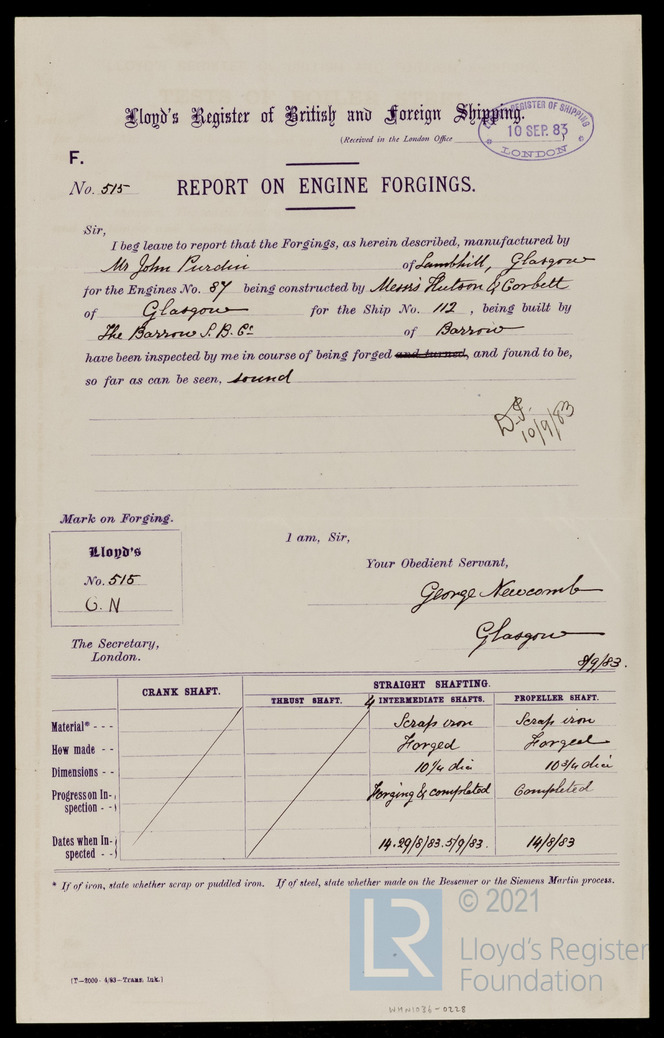 Lloyd's Register of British and Foreign Shipping.
(Received in the London Office
LLOYD'S REGISTER OF SHIPPING
10 SEP. 83
LONDON
F.
No. 515 REPORT ON ENGINE FORGINGS.
Sir,
I beg leave to report that the Forgings, as herein described, manufactured by
Mr John Purdin of Lambhill, Glasgow
for the Engines No. 87 being constructed by Messrs Hutson & Corbett
of Glasgow for the Ship No. 112, being built by
The Barrow S. B. Co of Barrow
have been inspected by me in course of being forged and turned, and found to be,
so far as can be seen, sound
D.F.
10/9/83
Mark on Forging.
Lloyd's
No. 515
G. N
I am, Sir,
Your Obedient Servant,
George Newcomb
Glasgow
8/9/83.
The Secretary,
London.
CRANK SHAFT. STRAIGHT SHAFTING.
THRUST SHAFT. 4 INTERMEDIATE SHAFTS. PROPELLER SHAFT.
Material* - - - Scrap iron Scrap iron
How made - - Forged Forged
Dimensions - - 10¼ dia 10¾ dia
Progress on In- Forging & completed Completed
spection - -
Dates when In- 14.29/8/83. 5/9/83. 14/8/83
spected - -
* If of iron, state whether scrap or puddled iron. If of steel, state whether made on the Bessemer or the Siemens Martin process.
(T—2000—4/83—Trans. Ink.)
LR
© 2021
Lloyd's Register
Foundation
WHN1036-0228